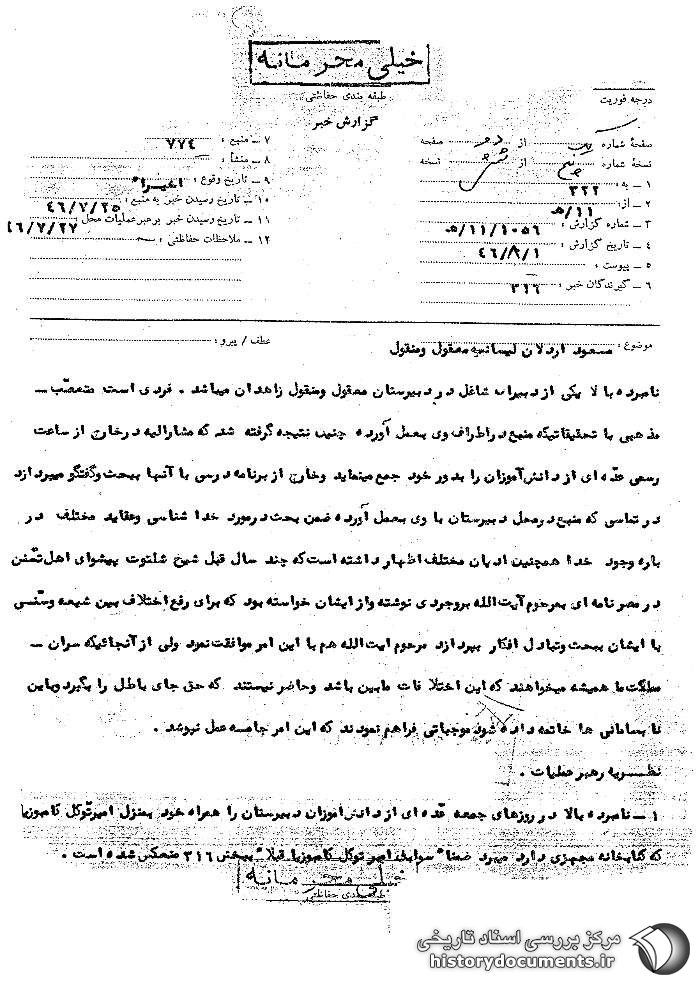 خیلی محرمانه
طبقه بندی حفاظتی
درجه فوریت
گزارش خبر
صفحهٔ شماره یک از دو صفحه
نسخهٔ شماره پنج از شش نسخه
۱ ــ به: ۳۲۲
۲ ــ از: ۱۱/ه
۳ ــ شماره گزارش: ۱۰۵۶/۱۱/ه
۴ ــ تاریخ گزارش: ۴۶/۸/۱
۵ ــ پیوست:
۶ ــ گیرندگان خبر: ۳۱۶
۷ ــ منبع: ۷۷۴
۸ ــ منشأ:
۹ ــ تاریخ وقوع: اخیراً
۱۰ ــ تاریخ رسیدن خبر به منبع: ۴۶/۷/۲۵
۱۱ ــ تاریخ رسیدن خبر برهبر عملیات محل: ۴۶/۷/۲۷
۱۲ ــ ملاحظات حفاظتی:
موضوع: مسعود اردلان لیسانسیه معقول ومنقول
عطف / پیرو:
نامبرده بالا یکی از دبیران شاغل در دبیرستان معقول ومنقول زاهدان میباشد . فردی است متعصّب ــ
مذهبی با تحقیقاتیکه منبع دراطراف وی بعمل آورده چنین نتیجه گرفته شد که مشارالیه درخارج از ساعت
رسمی عدّه ای از دانش آموزان را بدور خود جمع مینماید وخارج از برنامه درسی با آنها ببحث وگفتگو میپردازد
در تماسی که منبع درمحل دبیرستان با وی بعمل آورده ضمن بحث درمورد خدا شناسی وعقاید مختلف در
باره وجود خدا همچنین ادیان مختلف اظهار داشته است که چند سال قبل شیخ شلتوت پیشوای اهل تسّنن
در مصر نامه ای بمرحوم آیت الله بروجردی نوشته واز ایشان خواسته بود که برای رفع اختلاف بین شیعه وسّنی
با ایشان ببحث وتبادل افکار بپردازد مرحوم ایت الله هم با این امر موافقت نمود ولی از آنجائیکه سران ــ
مملکت ما همیشه میخواهند که این اختلا فات مابین باشد وحاضر نیستند که حق جای باطل را بگیرد وباین
نا بسامانی ها خاتمه داده شود موجباتی فراهم نمودند که این امر جامه عمل نپوشد .
نظــریه رهبر عملیات .
۱ ــ نامبرده بالا در روزهای جمعه عدّه ای از دانش آموزان دبیرستان را همراه خود بمنزل امیرتوکل کامبوزیا
که کتابخانه مجهزی دارد میبرد ضمناً سوابق امیر توکل کامبوزیا قبلاً ببخش ۳۱۶ منعکس شده است .
خیلی محرمانه
طبقه بندی حفاظتی
مرکز بررسی اسناد تاریخی
historydocuments.ir